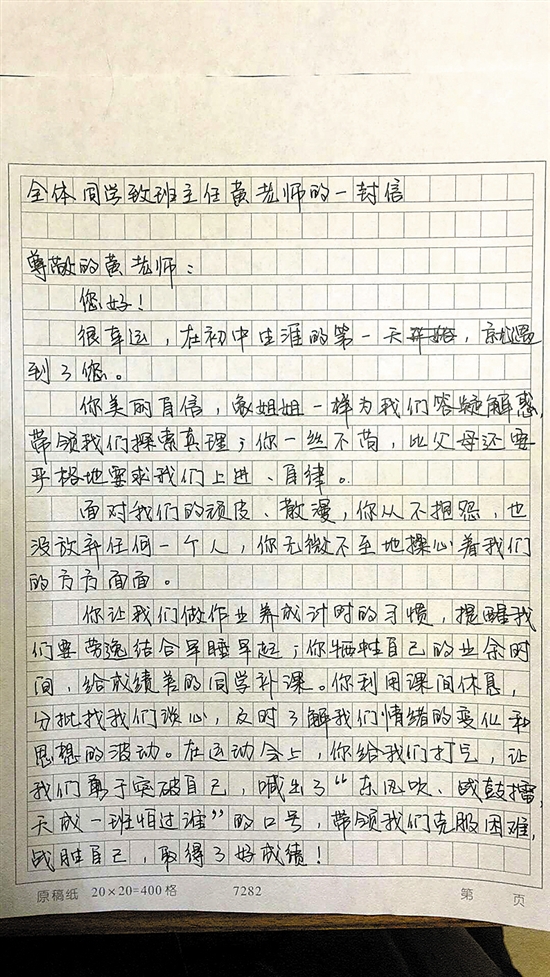 全体同学致班主任黄老师的一封信
尊敬的黄老师：
您好！
很幸运，在初中生涯的第一天开始，就遇
到了您。
你美丽自信，象姐姐一样为我们答疑解惑，
带领我们探索真理；你一丝不苟，比父母还要
严格地要求我们上进、自律。
面对我们的顽皮、散漫，你从不抱怨，也
没放弃任何一个人，你无微不至地操心着我们
的方方面面。
你让我们做作业养成计时的习惯，提醒我
们要劳逸结合早睡早起；你牺牲自己的业余时
间，给成绩差的同学补课。你利用课间休息，
分批找我们谈心，及时了解我们情绪的变化和
思想的波动。在运动会上，你给我们打气，让
我们勇于突破自己，喊出了“东风吹、战鼓擂，
天成一班怕过谁”的口号，带领我们克服困难，
战胜自己，取得了好成绩！
原稿纸 20×20=400格 7282 第 页